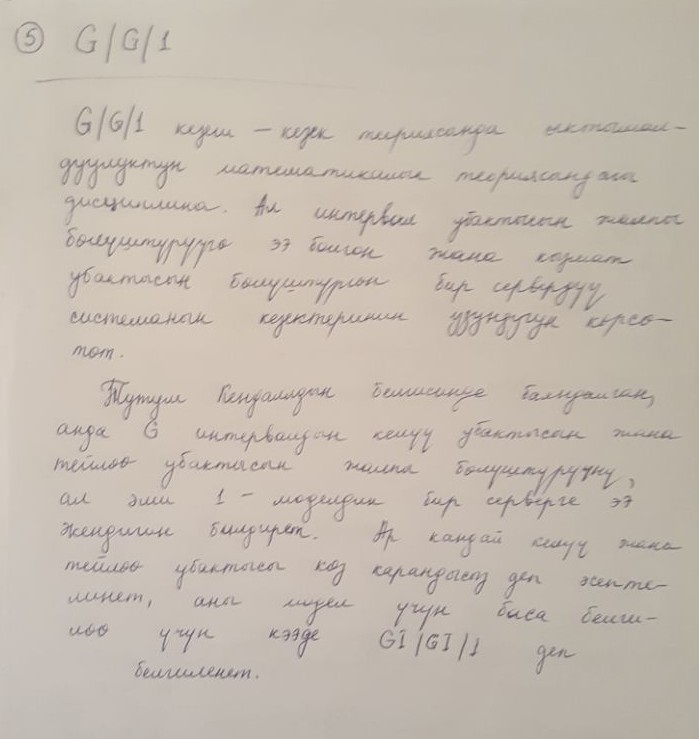 ⑤ G/G/1
G/G/1 кезеги – кезек теориясында ыктымал-
дуулуктун математикалык теориясындагы
дисциплина. Ал интервал убактысын жалпы
бөлүштүрүүгө ээ болгон жана кызмат
убактысын бөлүштүргөн бир сервердүү
системанын кезектеринин узундугун көрсө-
төт.
Тутум Кендаллдын белгисинде баяндалган,
анда G интервалдын келүү убактысын жана
тейлөө убактысын жалпы бөлүштүрүүнү,
ал эми 1 – моделдин бир серверге ээ
экендигин билдирет. Ар кандай келүү жана
тейлөө убактысы көз карандысыз деп эсепте-
линет, аны модел үчүн баса белги-
лөө үчүн кээде GI/GI/1 деп
белгиленет.